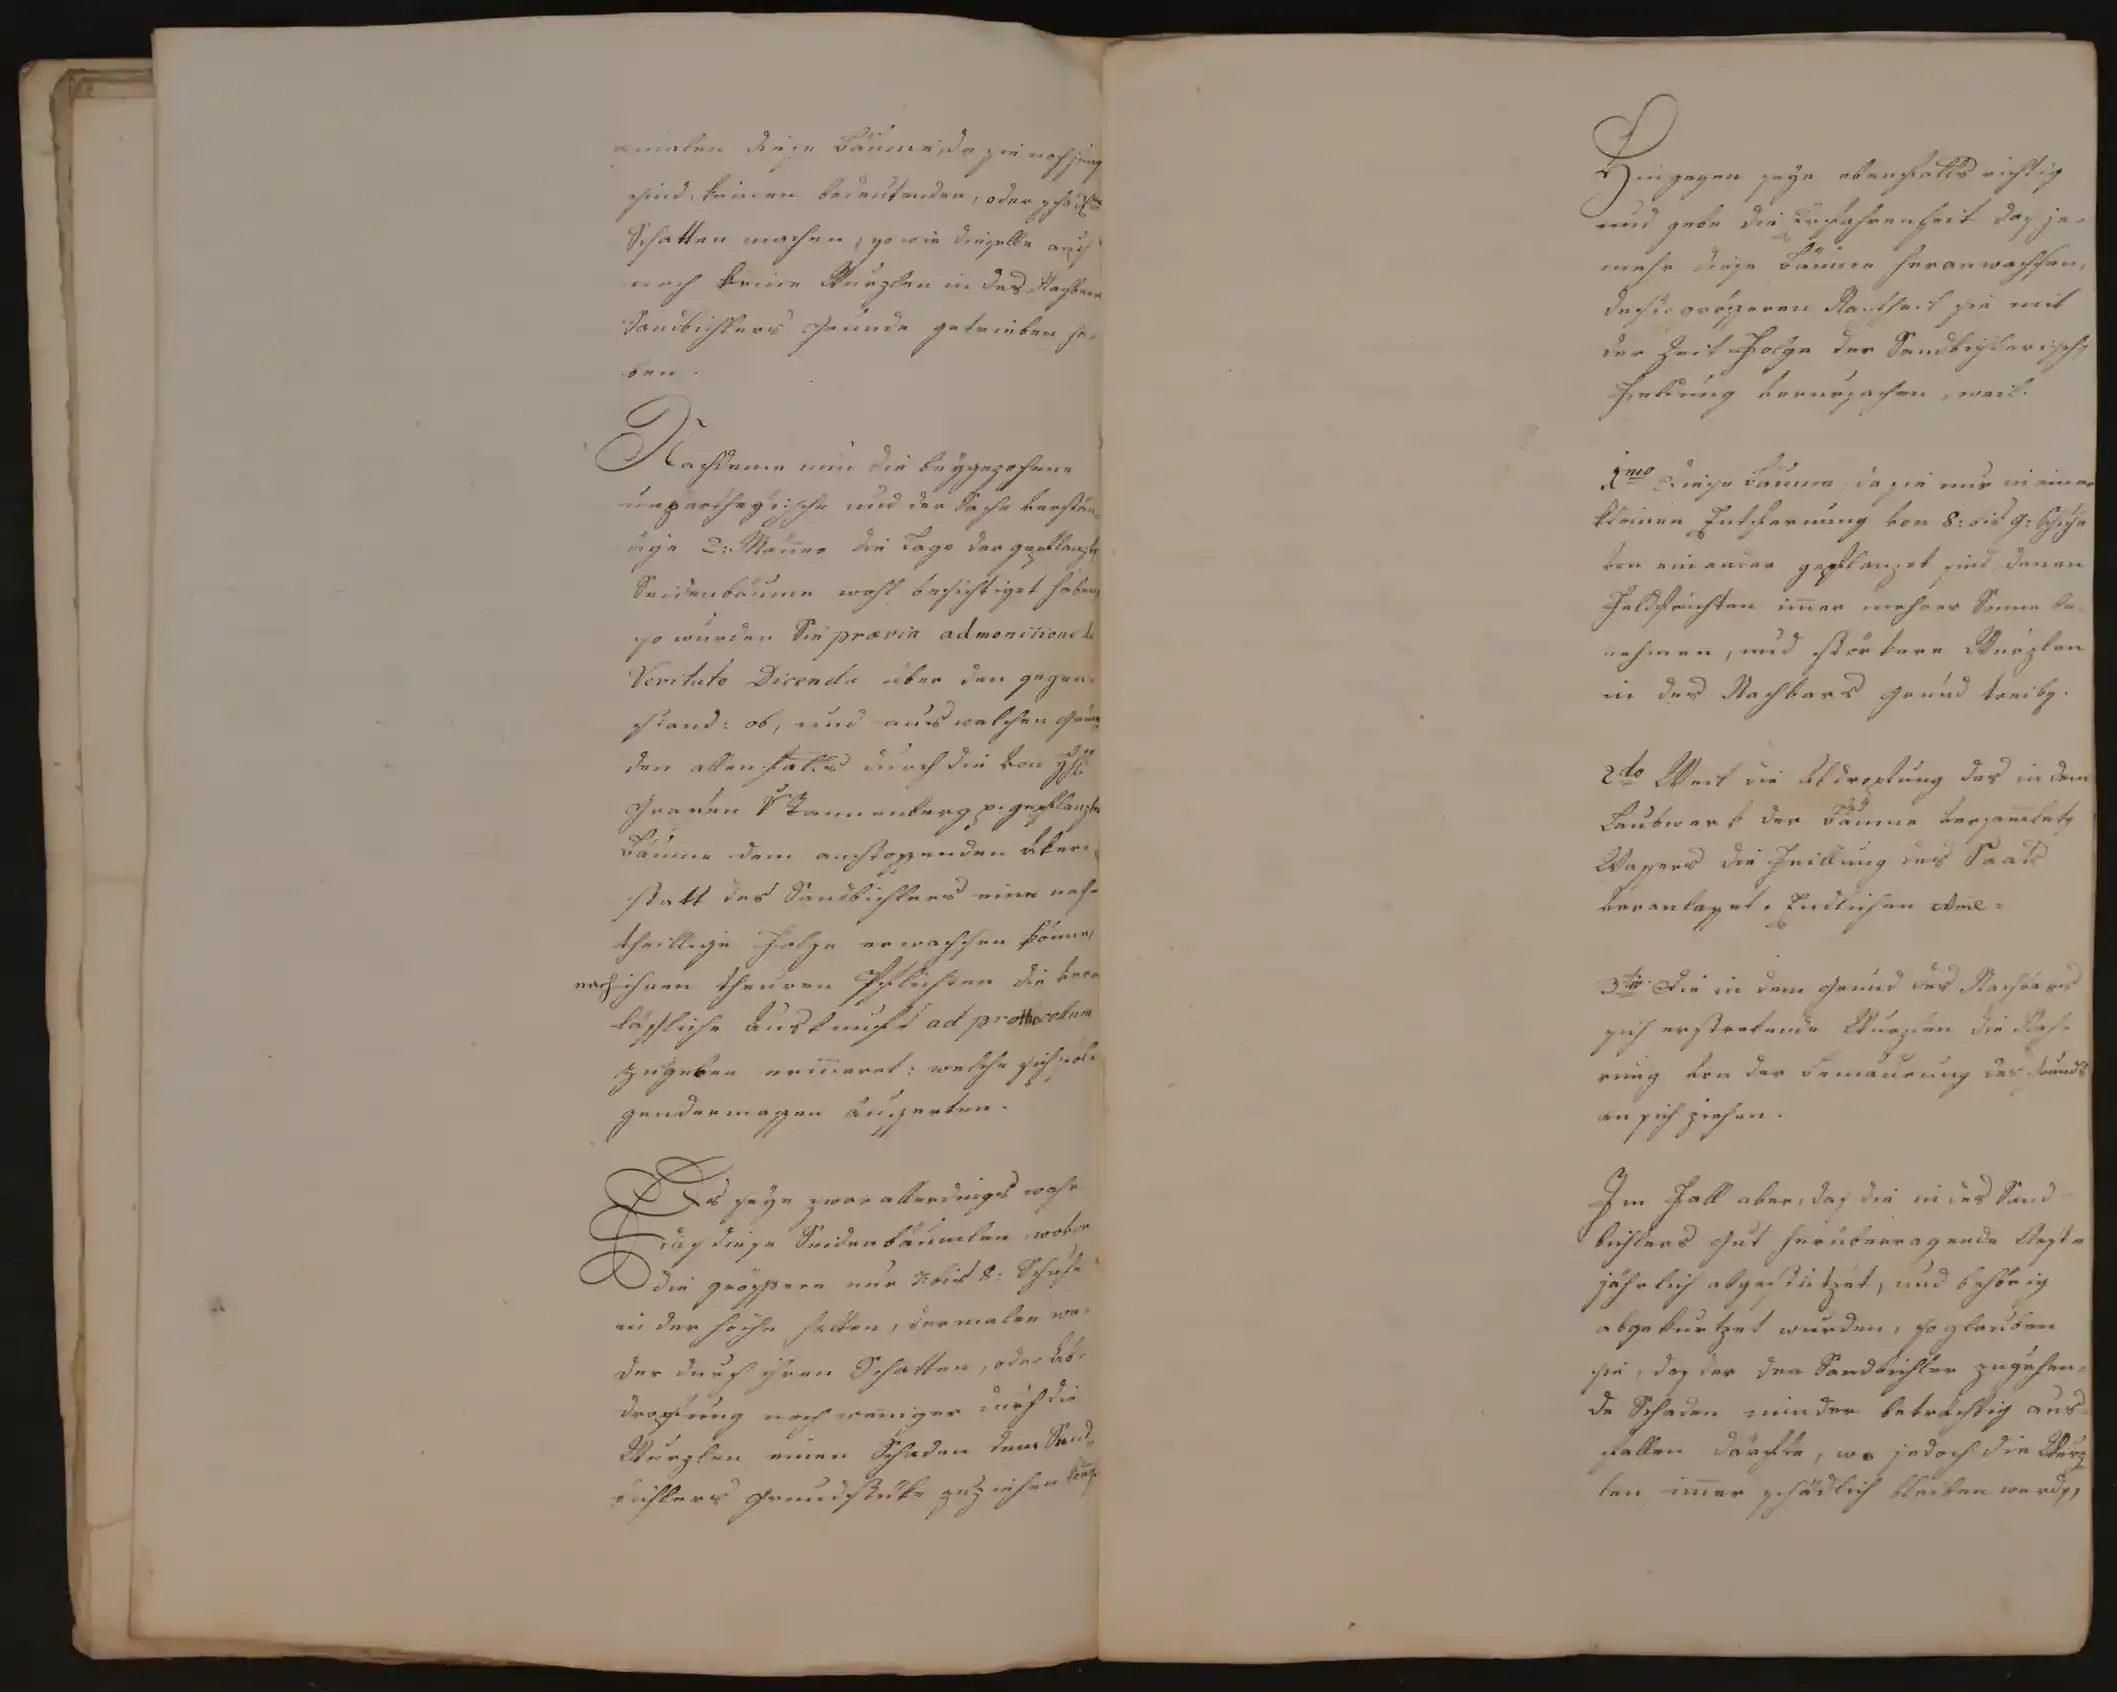 malen diese Bäume, da sie noch jung
sind, keinen bedeutenden, oder schädln
Schatten machen, so wie dieselbe auch
noch keine Wurzlen in des Nachbarn
Sandbichlers Grunde getrieben ha-
ben.
Nachdeme nun die beygezohene
unpartheyische und der Sache verstän-
dige 2: Männer die Lage der gepflanzten
Seidenbäume wohl besichtiget haben,
so wurden Sie praevia admonitione de
Veritate Dicenda über den gegen-
stand: ob, und aus welchen Grün-
den allenfalls durch die von
Grafen v Tannenberg p. gepflanzte
Bäume dem anstossenden Aker-
statt des Sandbichlers eine nach-
theillige Folge erwachsen könne,
nach ihren theuren Pflichten die ver-
läßliche Auskunft ad prothocollum
zugeben erinneret: welche sich fol-
gendermassen äusserten.
Es seye zwar allerdings wahr
daß diese Seidenbäumlen, wovon
die grössere nur 7: bis 8: Schuhe
in der Höche hatten, dermalen we-
der durch ihren Schatten, oder Ab-
dropfung noch weniger durch die
Wurzlen einen Schaden dem Sand-
bichlers Grundstüke zuziehen
Hingegen seye ebenfalls richtig
und gebe die Erfahrenheit daß je-
mehr diese Bäume heranwachsen,
desto grösseren Nachtheil sie mit
der Zeit Folge der Sandbichlerischen
Feldung verursachen, weil.
1mo Diese Bäume, da sie nur in einer
kleinen Entfernung von 8: bis 9: Schuhe
von einander gepflanzet sind, denen
Feldfrüchten immer mehrer Sonne be-
nehmen, und störkere Wurzlen
in des Nachbars Grund treiben.
2do Weil die Abdropfung des in dem
Laubwerk der Bäume versammleten
Wassers die Feillung des Saats
veranlasset. Endlichen
3tio Die in dem Grund des Nachbars
sich erstrekende Wurzlen die Nah-
rung von der Bemaurung des Grunds
an sich ziehen.
Im Fall aber, daß die in des Sand-
bichlers Gut herüberragende Aeste
jährlich abgestutzet, und behörig
abgekurtzet wurden, so glauben
sie, daß der den Sandbichler zugehen-
de Schaden minder beträchtig aus-
fallen därfte, wo jedoch die Wurz-
len immer schädlich bleiben werden,